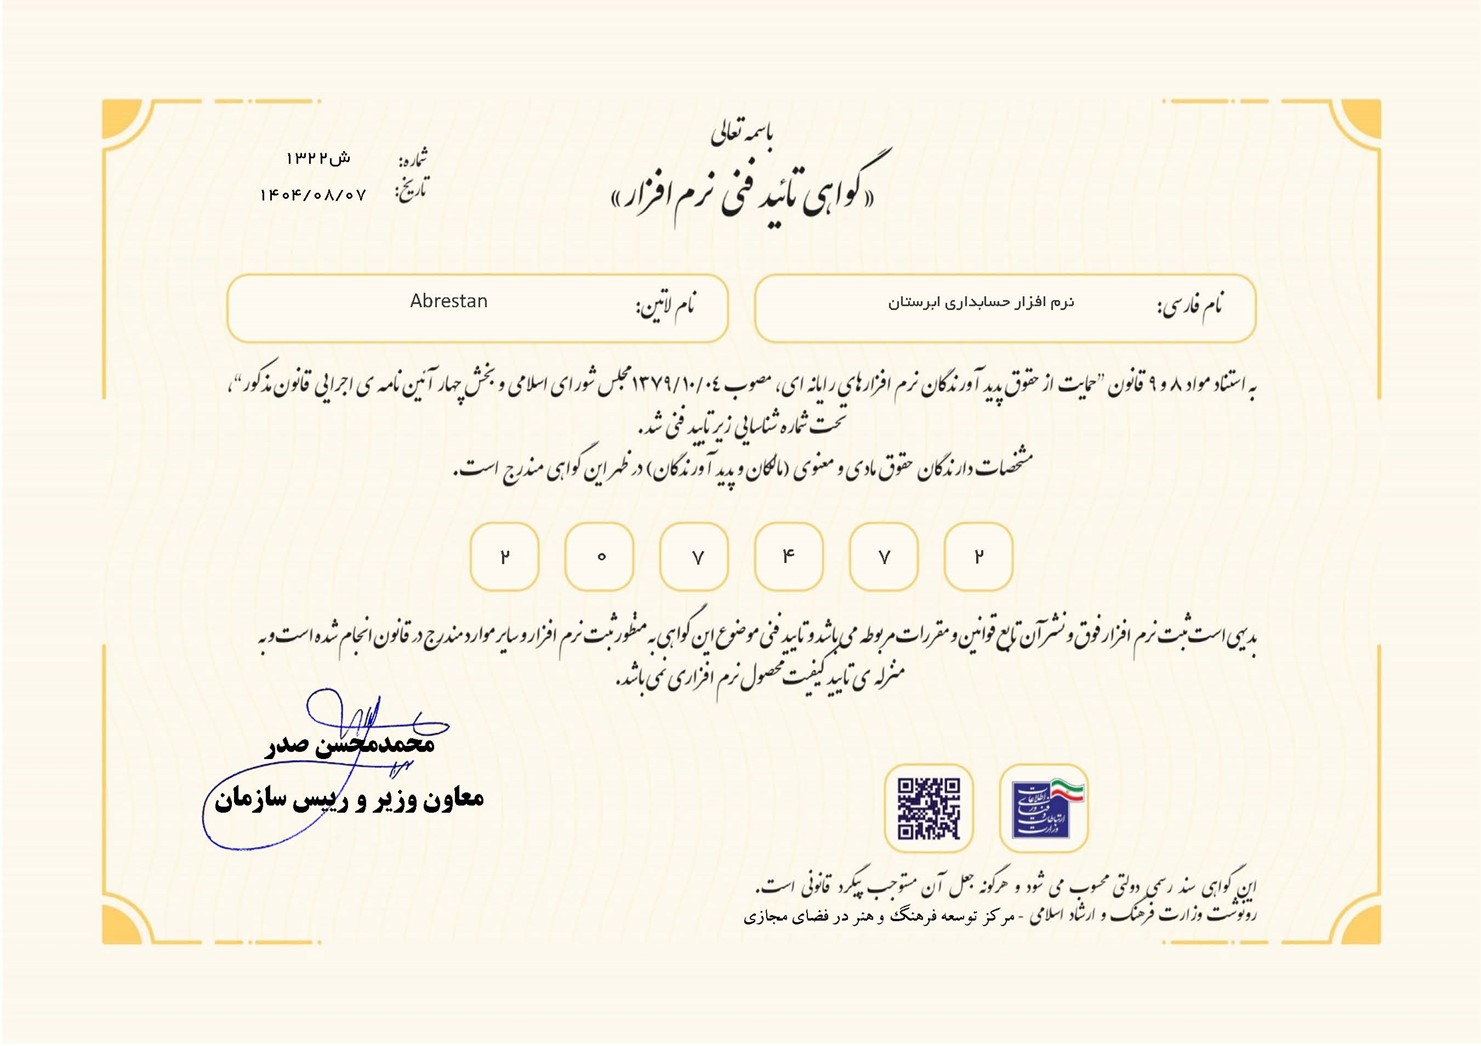 باسمه تعالی
«گواهی تائید فنی نرم افزار»
شماره: ش۱۳۲۲
تاریخ: ۱۴۰۴/۰۸/۰۷
نام فارسی: نرم افزار حسابداری ابرستان
نام لاتین: Abrestan
به استناد مواد ۸ و ۹ قانون ”حمایت از حقوق پدید آورندگان نرم افزارهای رایانه ای، مصوب ۱۳۷۹/۱۰/۰۴مجلس شورای اسلامی و بخش چهار آئین نامه ی اجرایی قانون مذکور“،
تحت شماره شناسایی زیر تایید فنی شد.
مشخصات دارندگان حقوق مادی و معنوی (مالکان و پدید آورندگان) در ظهر این گواهی مندرج است.
۲ ۰ ۷ ۴ ۷ ۲
بدیهی است ثبت نرم افزار فوق و نشر آن تابع قوانین و مقررات مربوطه می باشد و تایید فنی موضوع این گواهی به منظور ثبت نرم افزار و سایر موارد مندرج در قانون انجام شده است و به
منزله ی تایید کیفیت محصول نرم افزاری نمی باشد.
محمدمحسن صدر
معاون وزیر و رییس سازمان
وزارت ارتباطات و فناوری اطلاعات
این گواهی سند رسمی دولتی محسوب می شود و هرگونه جعل آن مستوجب پیگرد قانونی است.
رونوشت وزارت فرهنگ و ارشاد اسلامی - مرکز توسعه فرهنگ و هنر در فضای مجازی